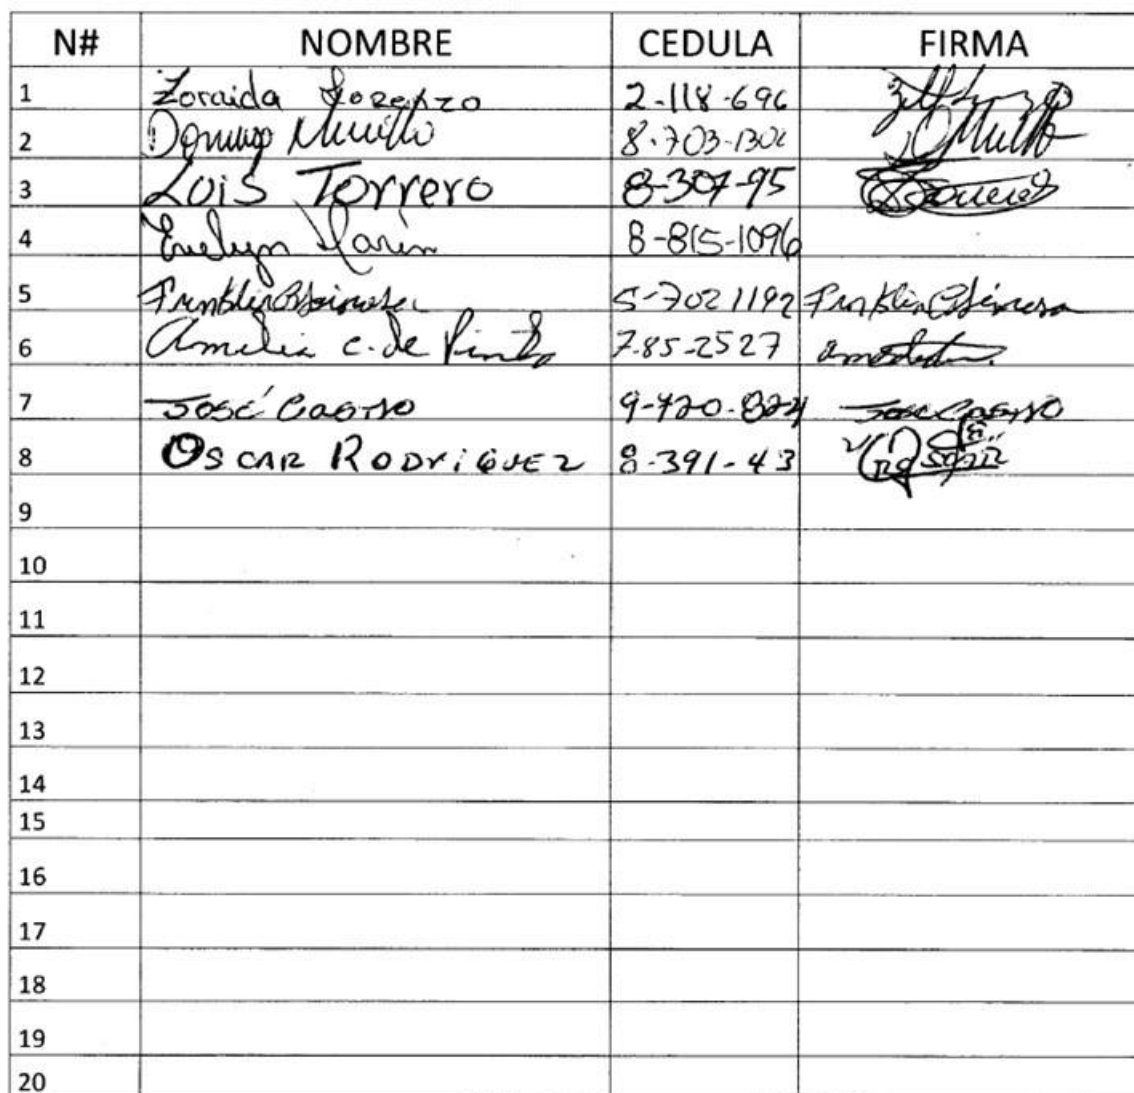 N# NOMBRE CEDULA FIRMA
1 Zoraida Lorenzo 2-118-696
2 Domingo Murillo 8-703-1301
3 Luis Torrero 8-307-95
4 Evelyn Marin 8-815-1096
5 Franklin Espinosa 5-702 1192 Franklin Espinosa
6 Amelia C. de Pinto 7-85-2527
7 José Castro 9-720-824 José Castro
8 OSCAR RODriGUEZ 8-391-43
9
10
11
12
13
14
15
16
17
18
19
20